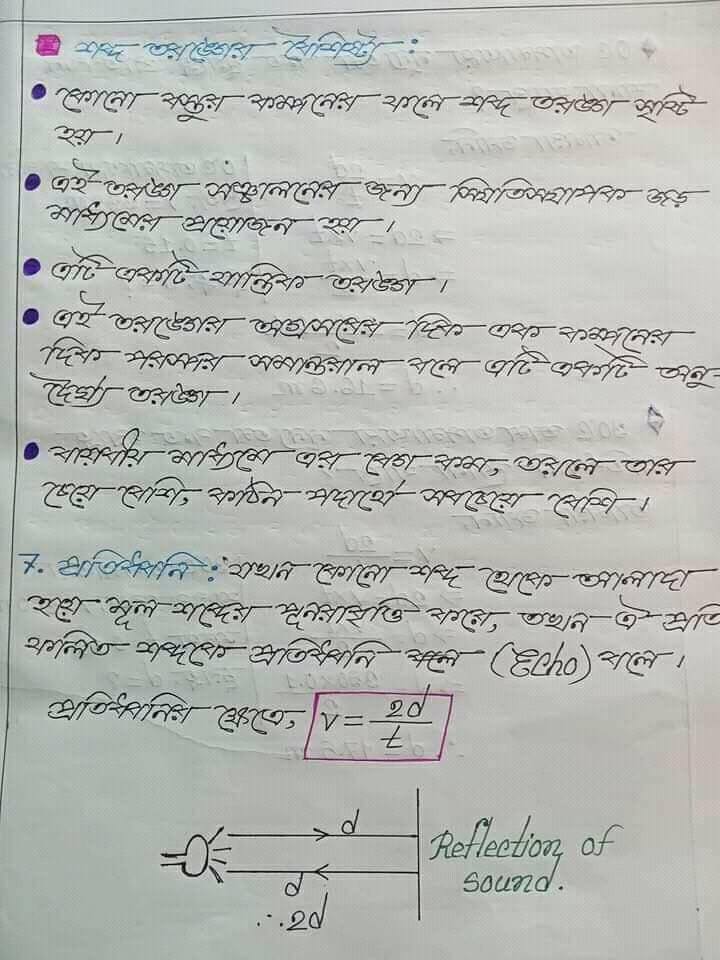 শব্দ তরঙ্গের বৈশিষ্ট্য :
কোনো বস্তুর কম্পনের ফলে শব্দ তরঙ্গ সৃষ্টি
হয়।
এই তরঙ্গ সঞ্চালনের জন্য স্থিতিস্থাপক জড়
মাধ্যমের প্রয়োজন হয়।
এটি একটি যান্ত্রিক তরঙ্গ।
এই তরঙ্গের অগ্রসরের দিক এবং কম্পনের
দিক পরস্পর সমান্তরাল বলে এটি একটি অনু-
দৈর্ঘ্য তরঙ্গ।
বায়বীয় মাধ্যমে এর বেগ কম, তরলে তার
চেয়ে বেশি, কঠিন পদার্থে সবচেয়ে বেশি।
7. প্রতিধ্বনি : যখন কোনো শব্দ থেকে আলাদা
হয়ে মূল শব্দের পুনরাবৃত্তি করে, তখন ঐ প্রতি
ফলিত শব্দকে প্রতিধ্বনি বলে (Echo) বলে।
প্রতিধ্বনির ক্ষেত্রে, v = 2d/t
d
Reflection of
sound.
d
∴ 2d